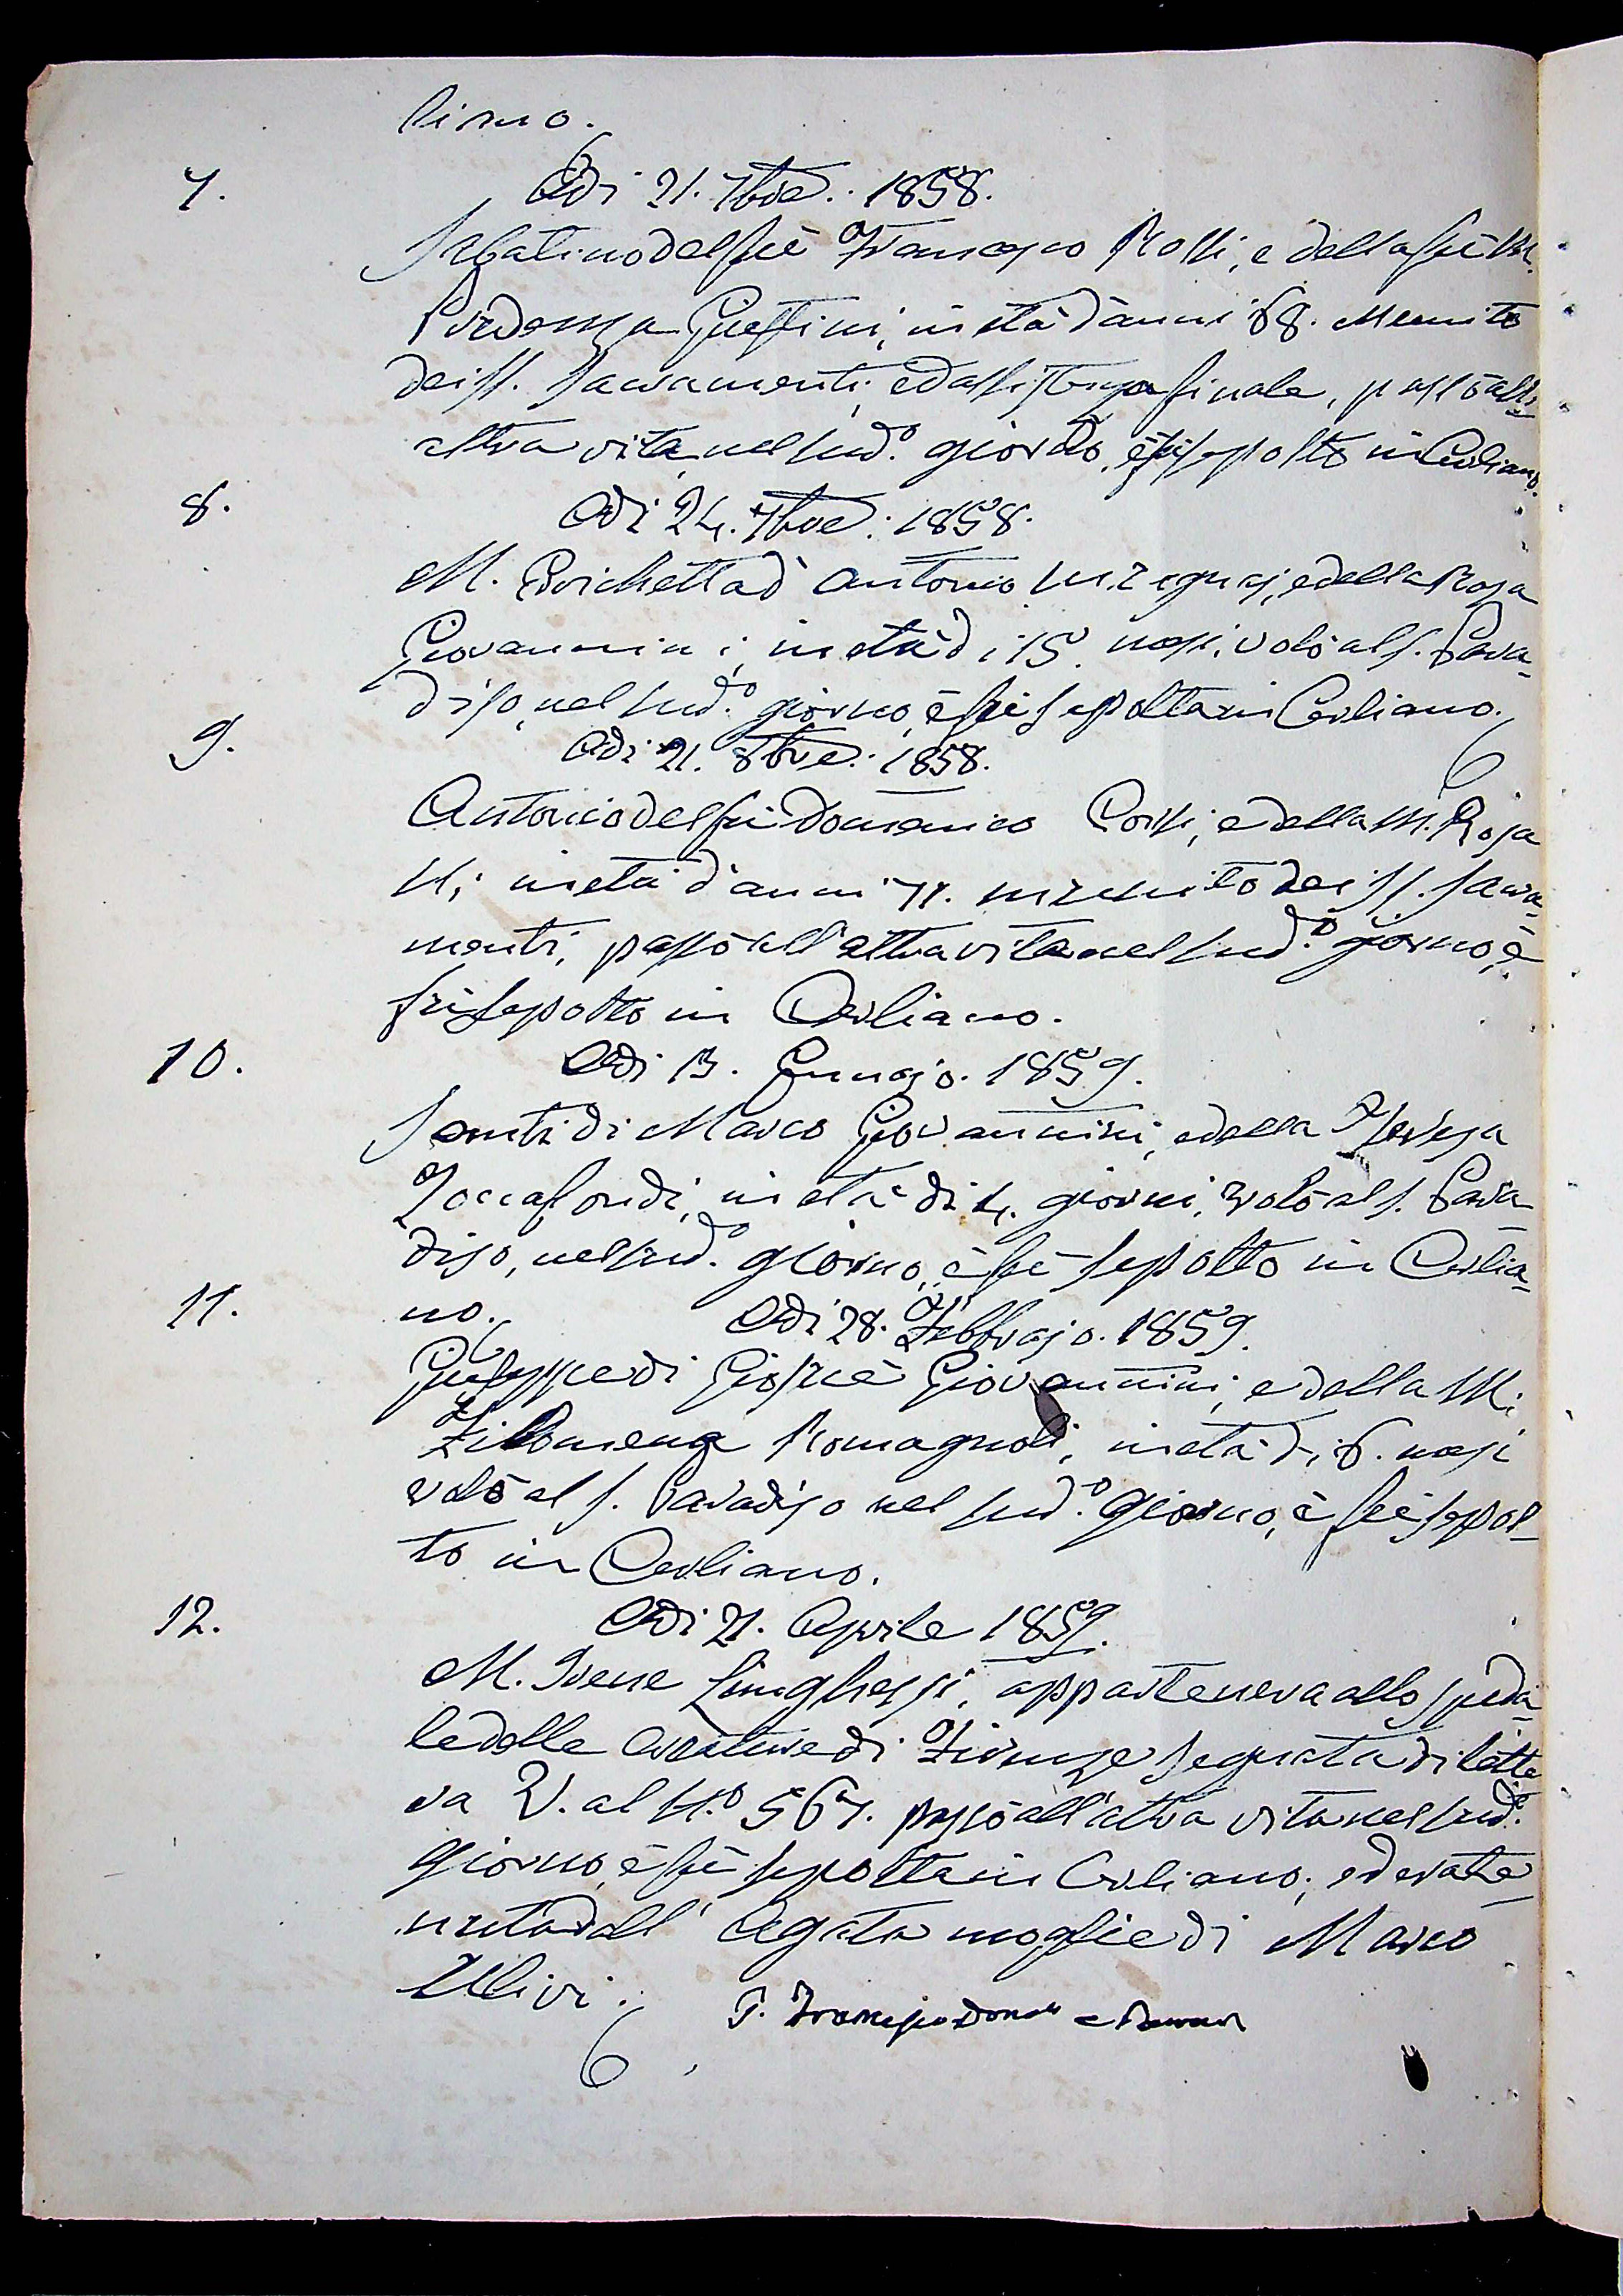 liano.
7. Adi 21. 7bre. 1858.
Sabatino del fù Francesco Rossi, e della fù M.
Prudenza Giustini, in età d'anni 68. Munito
dei SS. Sacramenti, ed assistenza finale, passò all'
altra vita nel sud.o giorno, e fù sepolto in Cerliano.
8. Adi 24. 7bre. 1858.
M. Enrichetta d'Antonio e della Rosa
Giovannini, in età di 15. mesi, volò al S. Para-
diso, nel sud.o giorno, e fù sepolta in Cerliano.
9. Adi 21. 8bre. 1858.
Antonio del fù Domenico Corsi, e della M. Rosa
N; in età d'anni 71. munito dei SS. Sacra-
menti, passò all'altra vita nel sud.o giorno, e
fù sepolto in Cerliano.
10. Adi 13. Gennajo. 1859.
Santi di Marco Giovannini, e della Teresa
Toccafondi, in età di 4. giorni, volò al S. Para-
diso, nel sud.o giorno, e fù sepolto in Cerlia-
11. no. Adi 28. Febbrajo. 1859.
Giuseppe di Giosuè Giovannini, e della M.
Filomena Romagnoli, in età di 6. mesi
volò al S. Paradiso nel sud.o giorno, e fù sepol-
to in Cerliano.
12. Adi 21. Aprile 1859.
M. Irene apparteneva allo speda-
le delle creature di Firenze segnata di lette-
ra V. al N.o 567. passò all'altra vita nel sud.o
giorno, e fù sepolta in Cerliano; ed era te-
nuta dall' Agata moglie di Marco
Ulivi.
P. Francesco